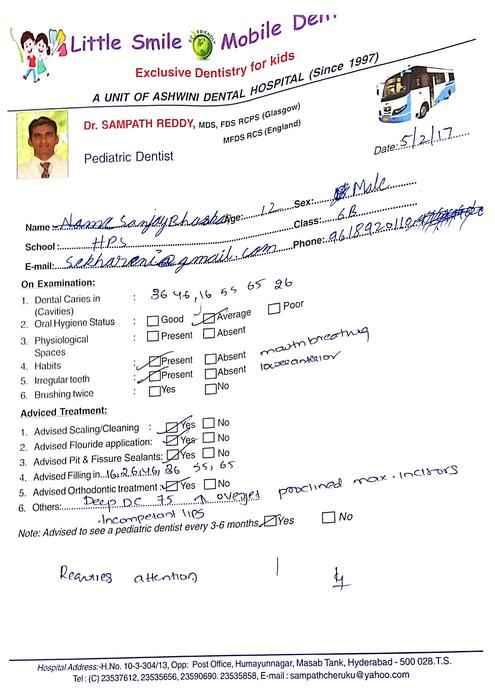 Little Smile Mobile Den
Exclusive Dentistry for kids
A UNIT OF ASHWINI DENTAL HOSPITAL (Since 1997)
Dr. SAMPATH REDDY, MDS, FDS RCPS (Glasgow)
MFDS RCS (England)
Pediatric Dentist
Date: 5/2/17
Name: Nama Sanjay Bhaskar Age: 12 Sex: Male
School: HPS Class: 6B
E-mail: sekharani@gmail.com Phone: 9618920110
On Examination:
1. Dental Caries in (Cavities) : 36 46, 16 55 65 26
2. Oral Hygiene Status : Good Average Poor
3. Physiological Spaces : Present Absent
4. Habits : Present Absent mouth breathing
5. Irregular teeth : Present Absent lower anterior
6. Brushing twice : Yes No
Adviced Treatment:
1. Advised Scaling/Cleaning : Yes No
2. Advised Flouride application: Yes No
3. Advised Pit & Fissure Sealants: Yes No
4. Advised Filling in.. 16, 26, 46, 36 55, 65
5. Advised Orthodontic treatment: Yes No
6. Others: Deep DC 75 ↑ overjet proclined max. incisors
Incompetant lips
Note: Advised to see a pediatric dentist every 3-6 months Yes No
Requries attention
Hospital Address:-H.No. 10-3-304/13, Opp: Post Office, Humayunnagar, Masab Tank, Hyderabad - 500 028.T.S.
Tel : (C) 23537612, 23535656, 23590690. 23535858, E-mail : sampathcheruku@yahoo.com